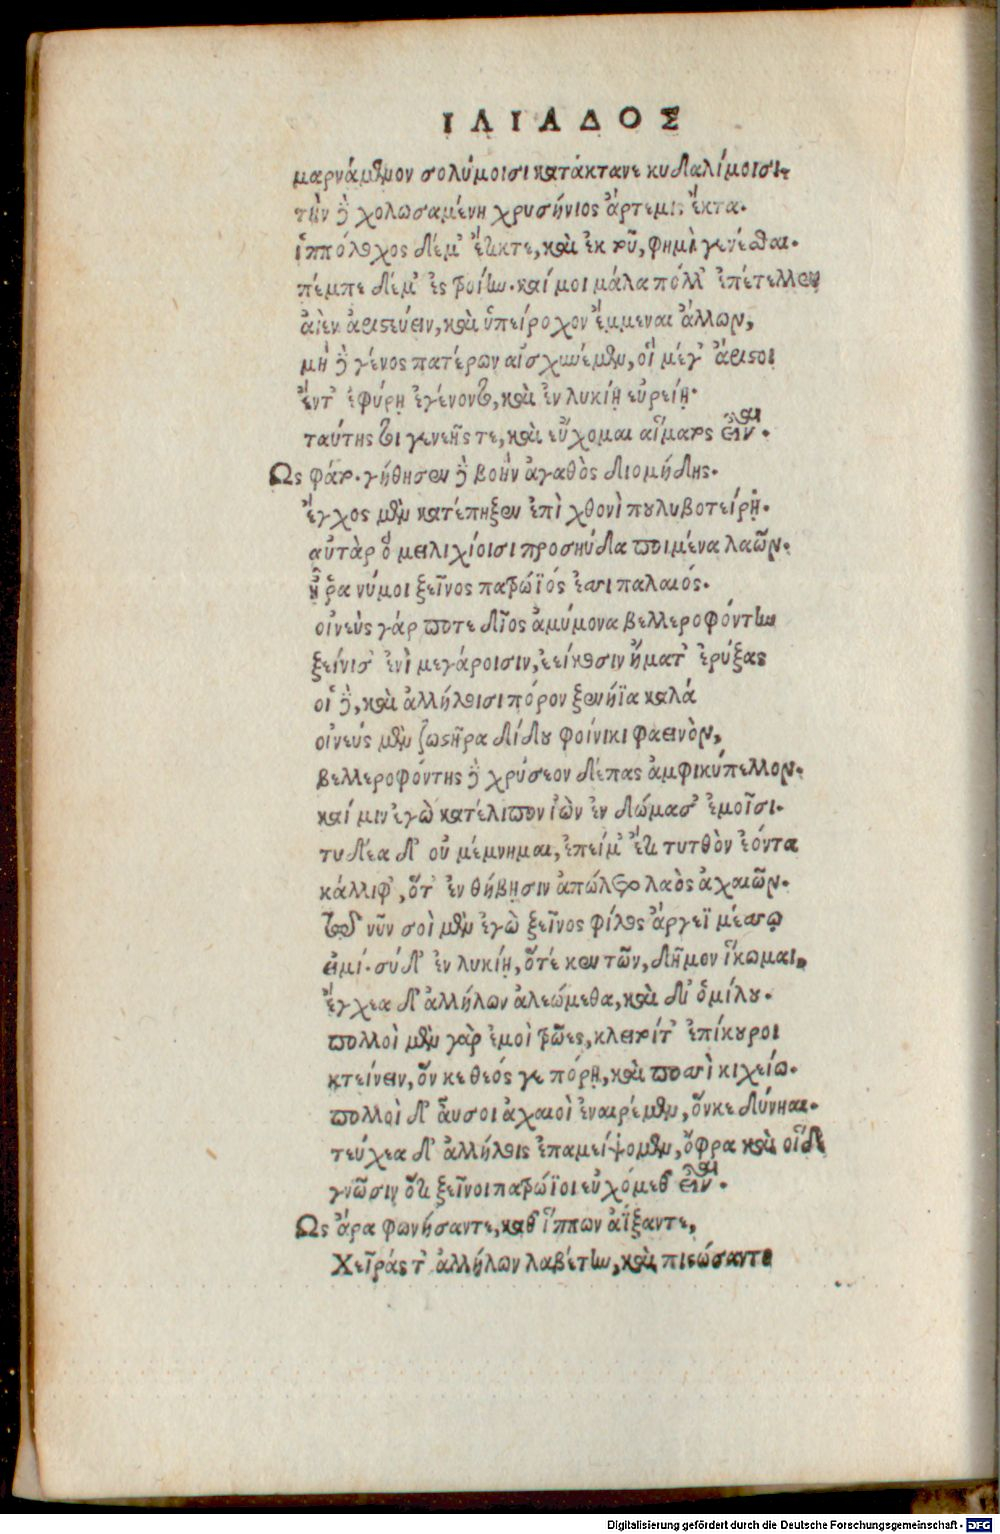 ΙΛΙΑΔΟΣ
μαρνάμενον σολύμοισι κατάκτανε κυδαλίμοισι·
τὴν δὲ χολωσαμένη χρυσήνιος ἄρτεμις ἔκτα.
ἱππόλοχος δέ μ' ἔτικτε, καὶ ἐκ τοῦ, φημὶ γενέσθαι.
πέμπε δέ μ' ἐς τροίην. καί μοι μάλα πόλλ' ἐπέτελλεν
αἰὲν ἀριστεύειν, καὶ ὑπείροχον ἔμμεναι ἄλλων,
μὴ δὲ γένος πατέρων αἰσχυνέμεν, οἳ μέγ' ἄριστοι
ἔντ' ἐφύρῃ ἐγένοντο, καὶ ἐν λυκίῃ εὐρείῃ.
ταύτης τοι γενεῆς τε, καὶ εὔχομαι αἵματος εἶναι.
Ως φάτο. γήθησεν δὲ βοὴν ἀγαθὸς διομήδης.
ἔγχος μὲν κατέπηξεν ἐπὶ χθονὶ πουλυβοτείρῃ.
αὐτὰρ ὃ μειλιχίοισι προσηύδα ποιμένα λαῶν.
ἦ ῥα νύ μοι ξεῖνος πατρώϊός ἐσσι παλαιός.
οἰνεὺς γάρ ποτε δῖος ἀμύμονα βελλεροφόντην
ξείνισ' ἐνὶ μεγάροισιν, ἐείκοσιν ἤματ' ἐρύξας
οἳ δὲ, καὶ ἀλλήλοισι πόρον ξεινήϊα καλά
οἰνεύς μὲν ζωστῆρα δίδου φοίνικι φαεινὸν,
βελλεροφόντης δὲ χρύσεον δέπας ἀμφικύπελλον.
καί μιν ἐγὼ κατέλιπον ἰὼν ἐν δώμασ' ἐμοῖσι.
τυδέα δ' οὐ μέμνημαι, ἐπεί μ' ἔτι τυτθὸν ἐόντα
κάλλιφ', ὅτ' ἐν θήβῃσιν ἀπώλετο λαὸς ἀχαιῶν.
τῷ νῦν σοὶ μὲν ἐγὼ ξεῖνος φίλος ἄργεϊ μέσσῳ
εἰμί. σύ δ' ἐν λυκίῃ, ὅτέ κεν τῶν, δῆμον ἵκωμαι,
ἔγχεα δ' ἀλλήλων ἀλεώμεθα, καὶ δι' ὁμίλου.
πολλοὶ μὲν γὰρ ἐμοὶ τρῶες, κλειτοί τ' ἐπίκουροι
κτείνειν, ὅν κε θεός γε πόρῃ, καὶ ποσσὶ κιχείω.
πολλοὶ δ' αὖ σοι ἀχαιοὶ ἐναιρέμεν, ὅν κε δύνηαι.
τεύχεα δ' ἀλλήλοις ἐπαμείψομεν, ὄφρα καὶ οἵδε
γνῶσιν ὅτι ξεῖνοι πατρώϊοι εὐχόμεθ' εἶναι.
Ως ἄρα φωνήσαντε, καθ' ἵππων ἀΐξαντε,
Χεῖράς τ' ἀλλήλων λαβέτην, καὶ πιστώσαντο
Digitalisierung gefördert durch die Deutsche Forschungsgemeinschaft - DFG